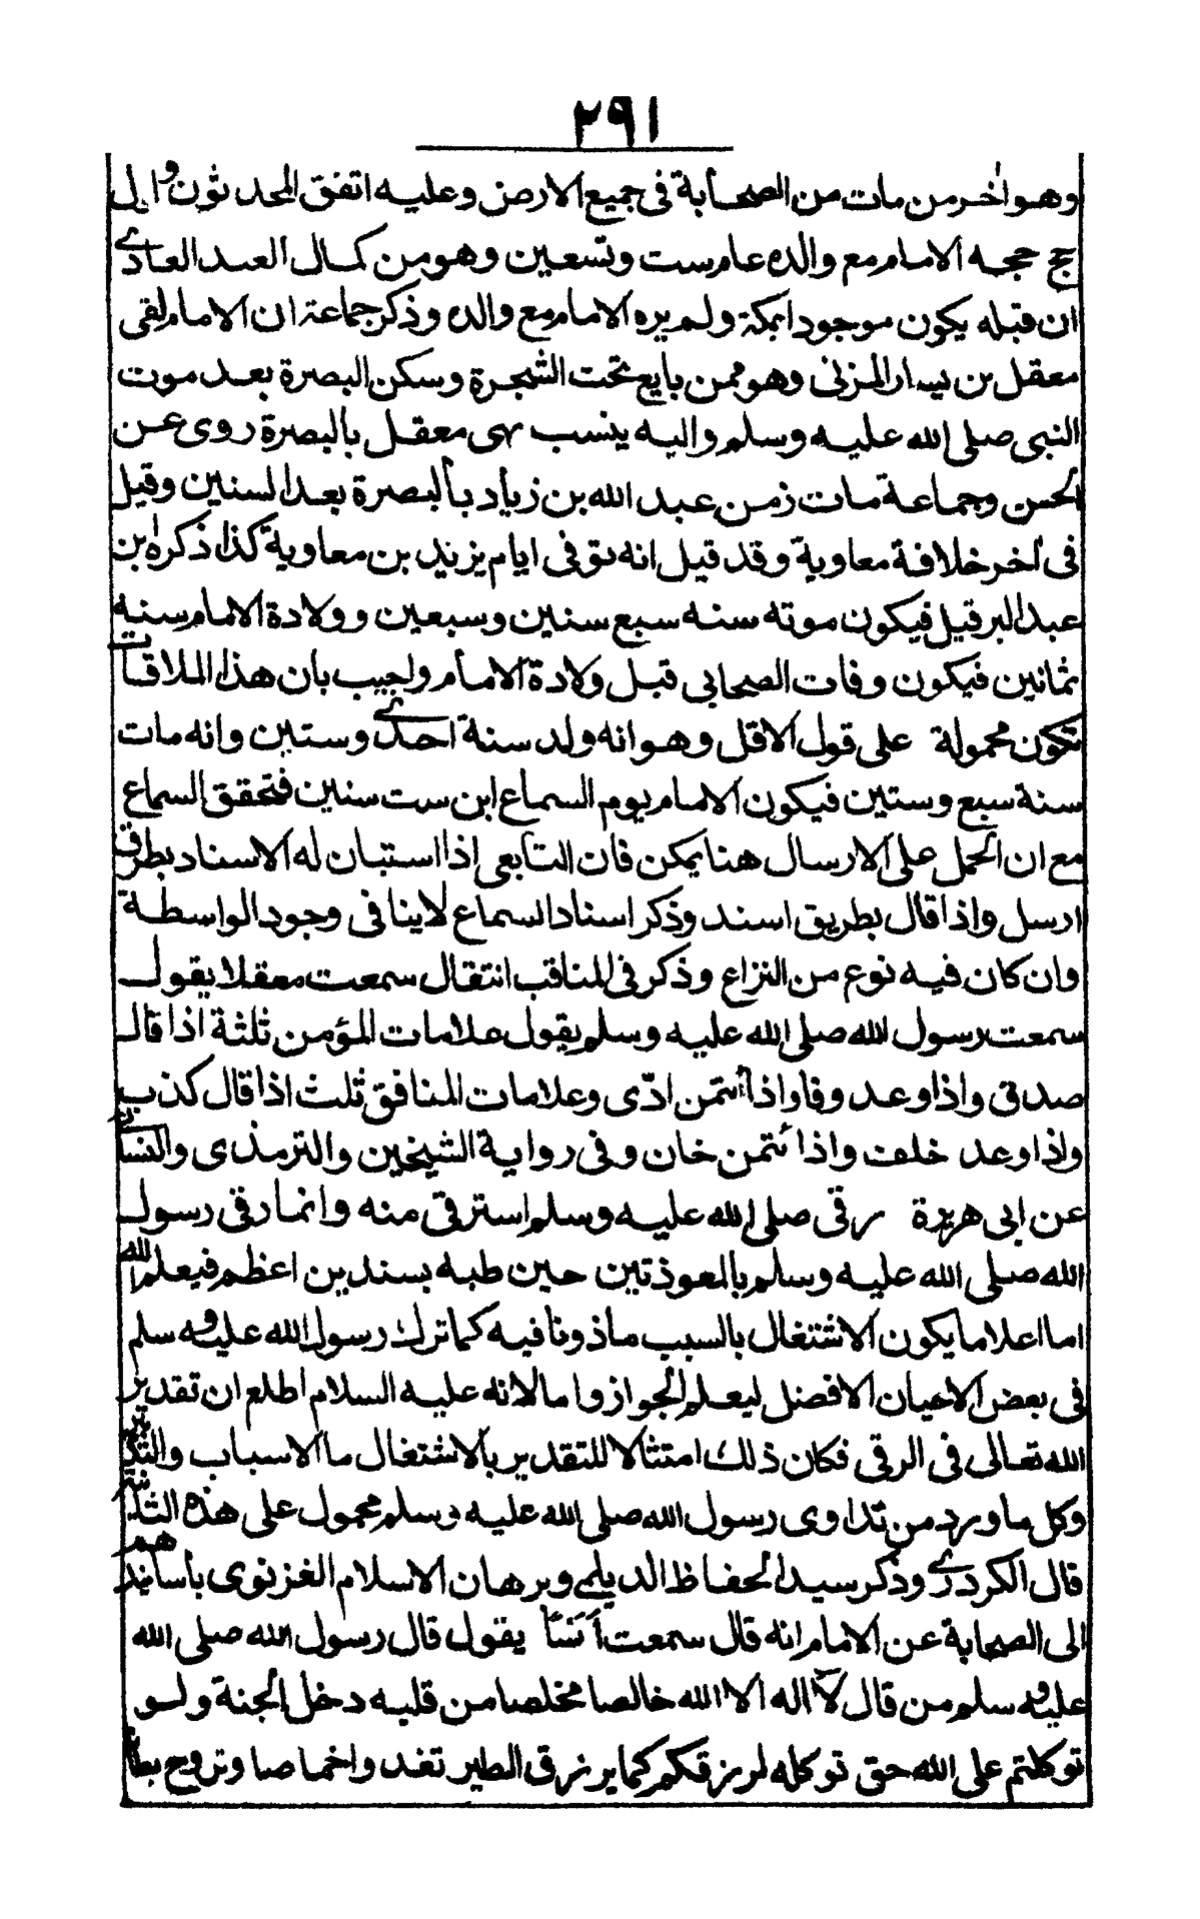 ٢٩١
وهو اٰخر من مات من الصحابة فى جميع الارض وعليه اتفق المحدثون و اول
حج حجه الامام مع والده عام ست وتسعين وهو من كمال العبد العادى
ان قبله يكون موجودا بمكة ولم يره الامام مع والده وذكر جماعة ان الامام لقى
معقل بن يسار المزنى وهو ممن بايع تحت الشجرة وسكن البصرة بعد موت
النبى صلى الله عليه وسلم واليه ينسب نهى معقل بالبصرة روى عن
الحسن وجماعة مات زمن عبد الله بن زياد بالبصرة بعد السنين وقيل
فى اٰخر خلافة معاوية وقد قيل انه توفى ايام يزيد بن معاوية كذا ذكره ابن
عبد البر قيل فيكون موته سنه سبع سنين وسبعين وولادة الامام سنه
ثمانين فيكون وفات الصحابى قبل ولادة الامام واجيب بان هذا الملاقات
تكون محمولة على قول الاقل وهو انه ولد سنة احدى وستين وانه مات
سنة سبع وستين فيكون الامام يوم السماع ابن ست سنين فتحقق السماع
مع ان الحمل على الارسال هنا يمكن فان التابعى اذا استبان له الاسناد بطرق
ارسل واذا قال بطريق اسند وذكر اسناد السماع لاينافى وجود الواسطة
وان كان فيه نوع من النزاع وذكر فى المناقب انتقال سمعت معقلا يقول
سمعت رسول الله صلى الله عليه وسلم يقول علامات المؤمن ثلثة اذا قال
صدق واذا وعد وفا واذا أتتمن ادّى وعلامات المنافق ثلث اذا قال كذب
واذا وعد خلف واذا ئتمن خان وفى رواية الشيخين والترمذى والنسائى
عن ابى هريرة رقى صلى الله عليه وسلم استرقى منه وانما رقى رسول
الله صلى الله عليه وسلم بالمعوذتين حين طبه بسند بن اعظم فيعلم الله
اما اعلاما يكون الاشتغال بالسبب ماذونا فيه كما ترك رسول الله عليه وسلم
فى بعض الاحيان الافضل ليعلم الجواز واما لانه عليه السلام اطلع ان تقدير
الله تعالى فى الرقى فكان ذلك امتثالا للتقدير بالاشتغال ما الاسباب والتدبير
وكل ما ورد من تداوى رسول الله صلى الله عليه وسلم محمول على هذه
قال الكردرى وذكر سيد الحفاظ الديلمى وبرهان الاسلام الغزنوى باسانيدهم
الى الصحابة عن الامام انه قال سمعت أنسًا يقول قال رسول الله صلى الله
عليه وسلم من قال لا اله الا الله خالصا مخلصا من قلبه دخل الجنة ولو
توكلتم على الله حق توكله لرزقكم كما يرزق الطير تغدواخماصا وتروح بطانا